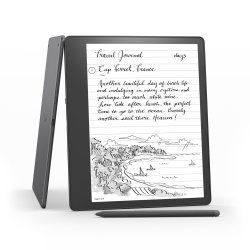 Travel Journal days
Cap Ferret, France
Another beautiful day of beach life
and indulging in many oysters and
perhaps too much white wine.
Low tide after lunch, the perfect
time to go to the ocean. Bianely
another soul there. Heaven!